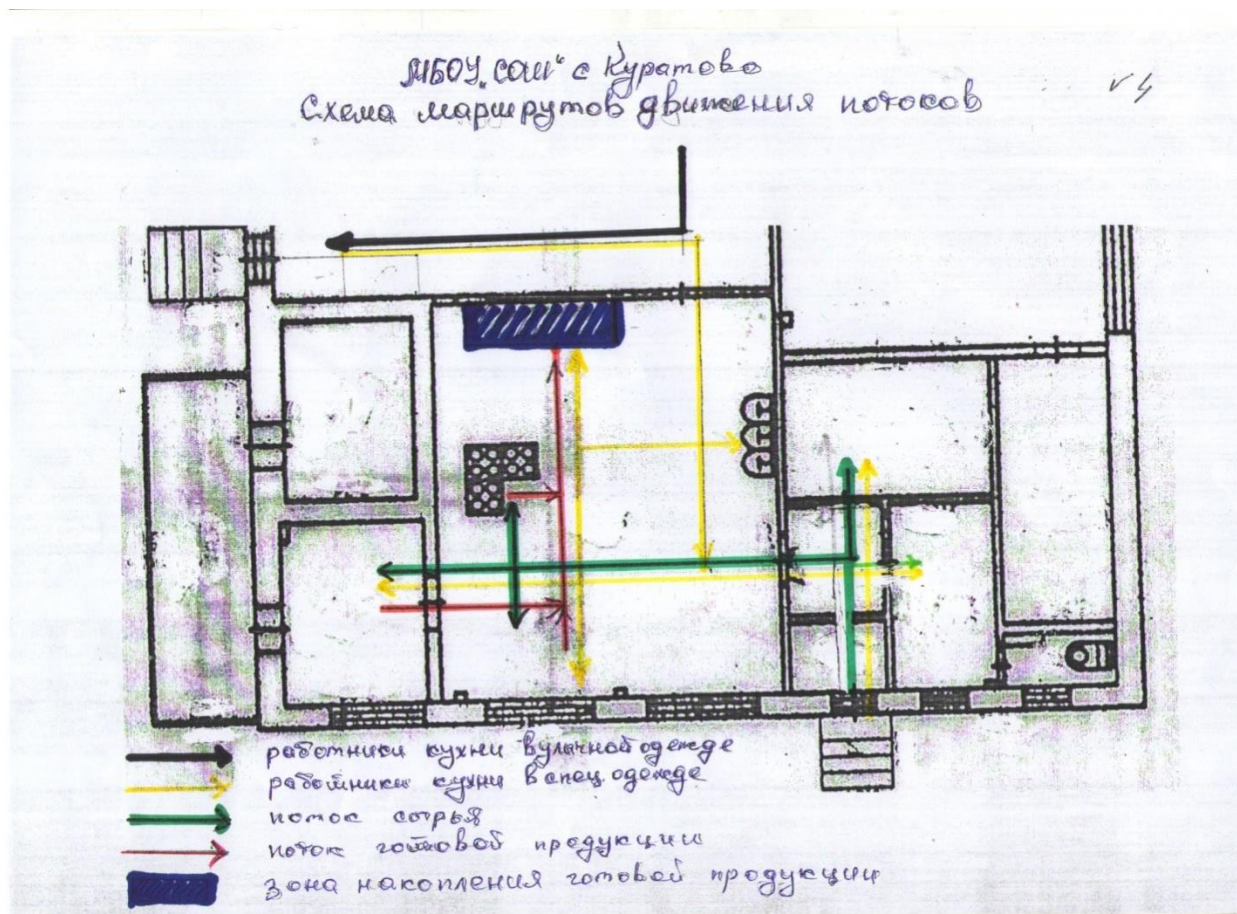 МБОУ „СОШ“ с Куратово
Схема маршрутов движения потоков
работники кухни в уличной одежде
работники кухни в спец одежде
поток сырья
поток готовой продукции
зона накопления готовой продукции